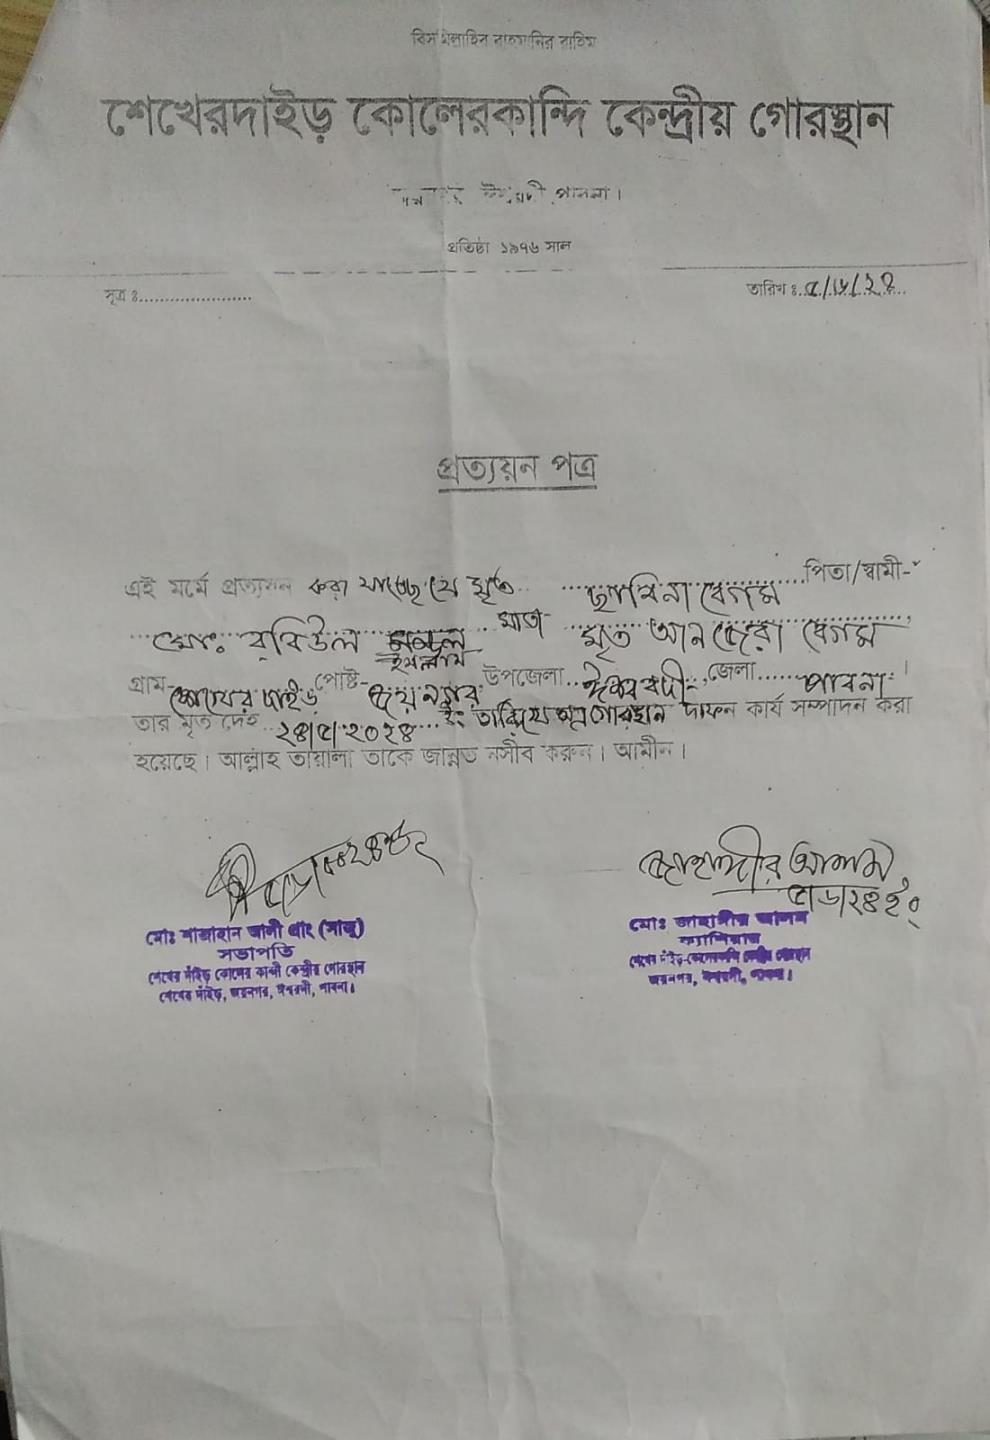 বিসমিল্লাহির রাহমানির রাহিম
শেখেরদাইড় কোলেরকান্দি কেন্দ্রীয় গোরস্থান
ঈশ্বরদী, পাবনা।
প্রতিষ্ঠা ১৯৭৬ সাল
সূত্র ঃ......................
তারিখ ঃ
প্রত্যয়ন পত্র
এই মর্মে প্রত্যয়ন করা যাচ্ছে যে মৃত বেগম পিতা/স্বামী-
মোঃ রবিউল ইসলাম মাতা মৃত আনজেরা বেগম
গ্রাম- শেখের দাইড় পোষ্ট- জয়নগর উপজেলা ঈশ্বরদী, জেলা পাবনা।
তার মৃত দেহ ২৪/৫/২০২৪ ইং তারিখে অত্র গোরস্থান দাফন কার্য সম্পাদন করা
হয়েছে। আল্লাহ তায়ালা তাকে জান্নত নসীব করুন। আমীন।
জাহাঙ্গীর আলম
মোঃ শাজাহান আলী খাং (সাজু)
সভাপতি
শেখের দাঁইড় কোলের কান্দী কেন্দ্রীয় গোরস্থান
শেখের দাঁইড়, জয়নগর, ঈশ্বরদী, পাবনা।
মোঃ জাহাঙ্গীর আলম
ক্যাশিয়ার
শেখের দাঁইড় কোলেরকান্দি কেন্দ্রীয় গোরস্থান
জয়নগর, ঈশ্বরদী, পাবনা।